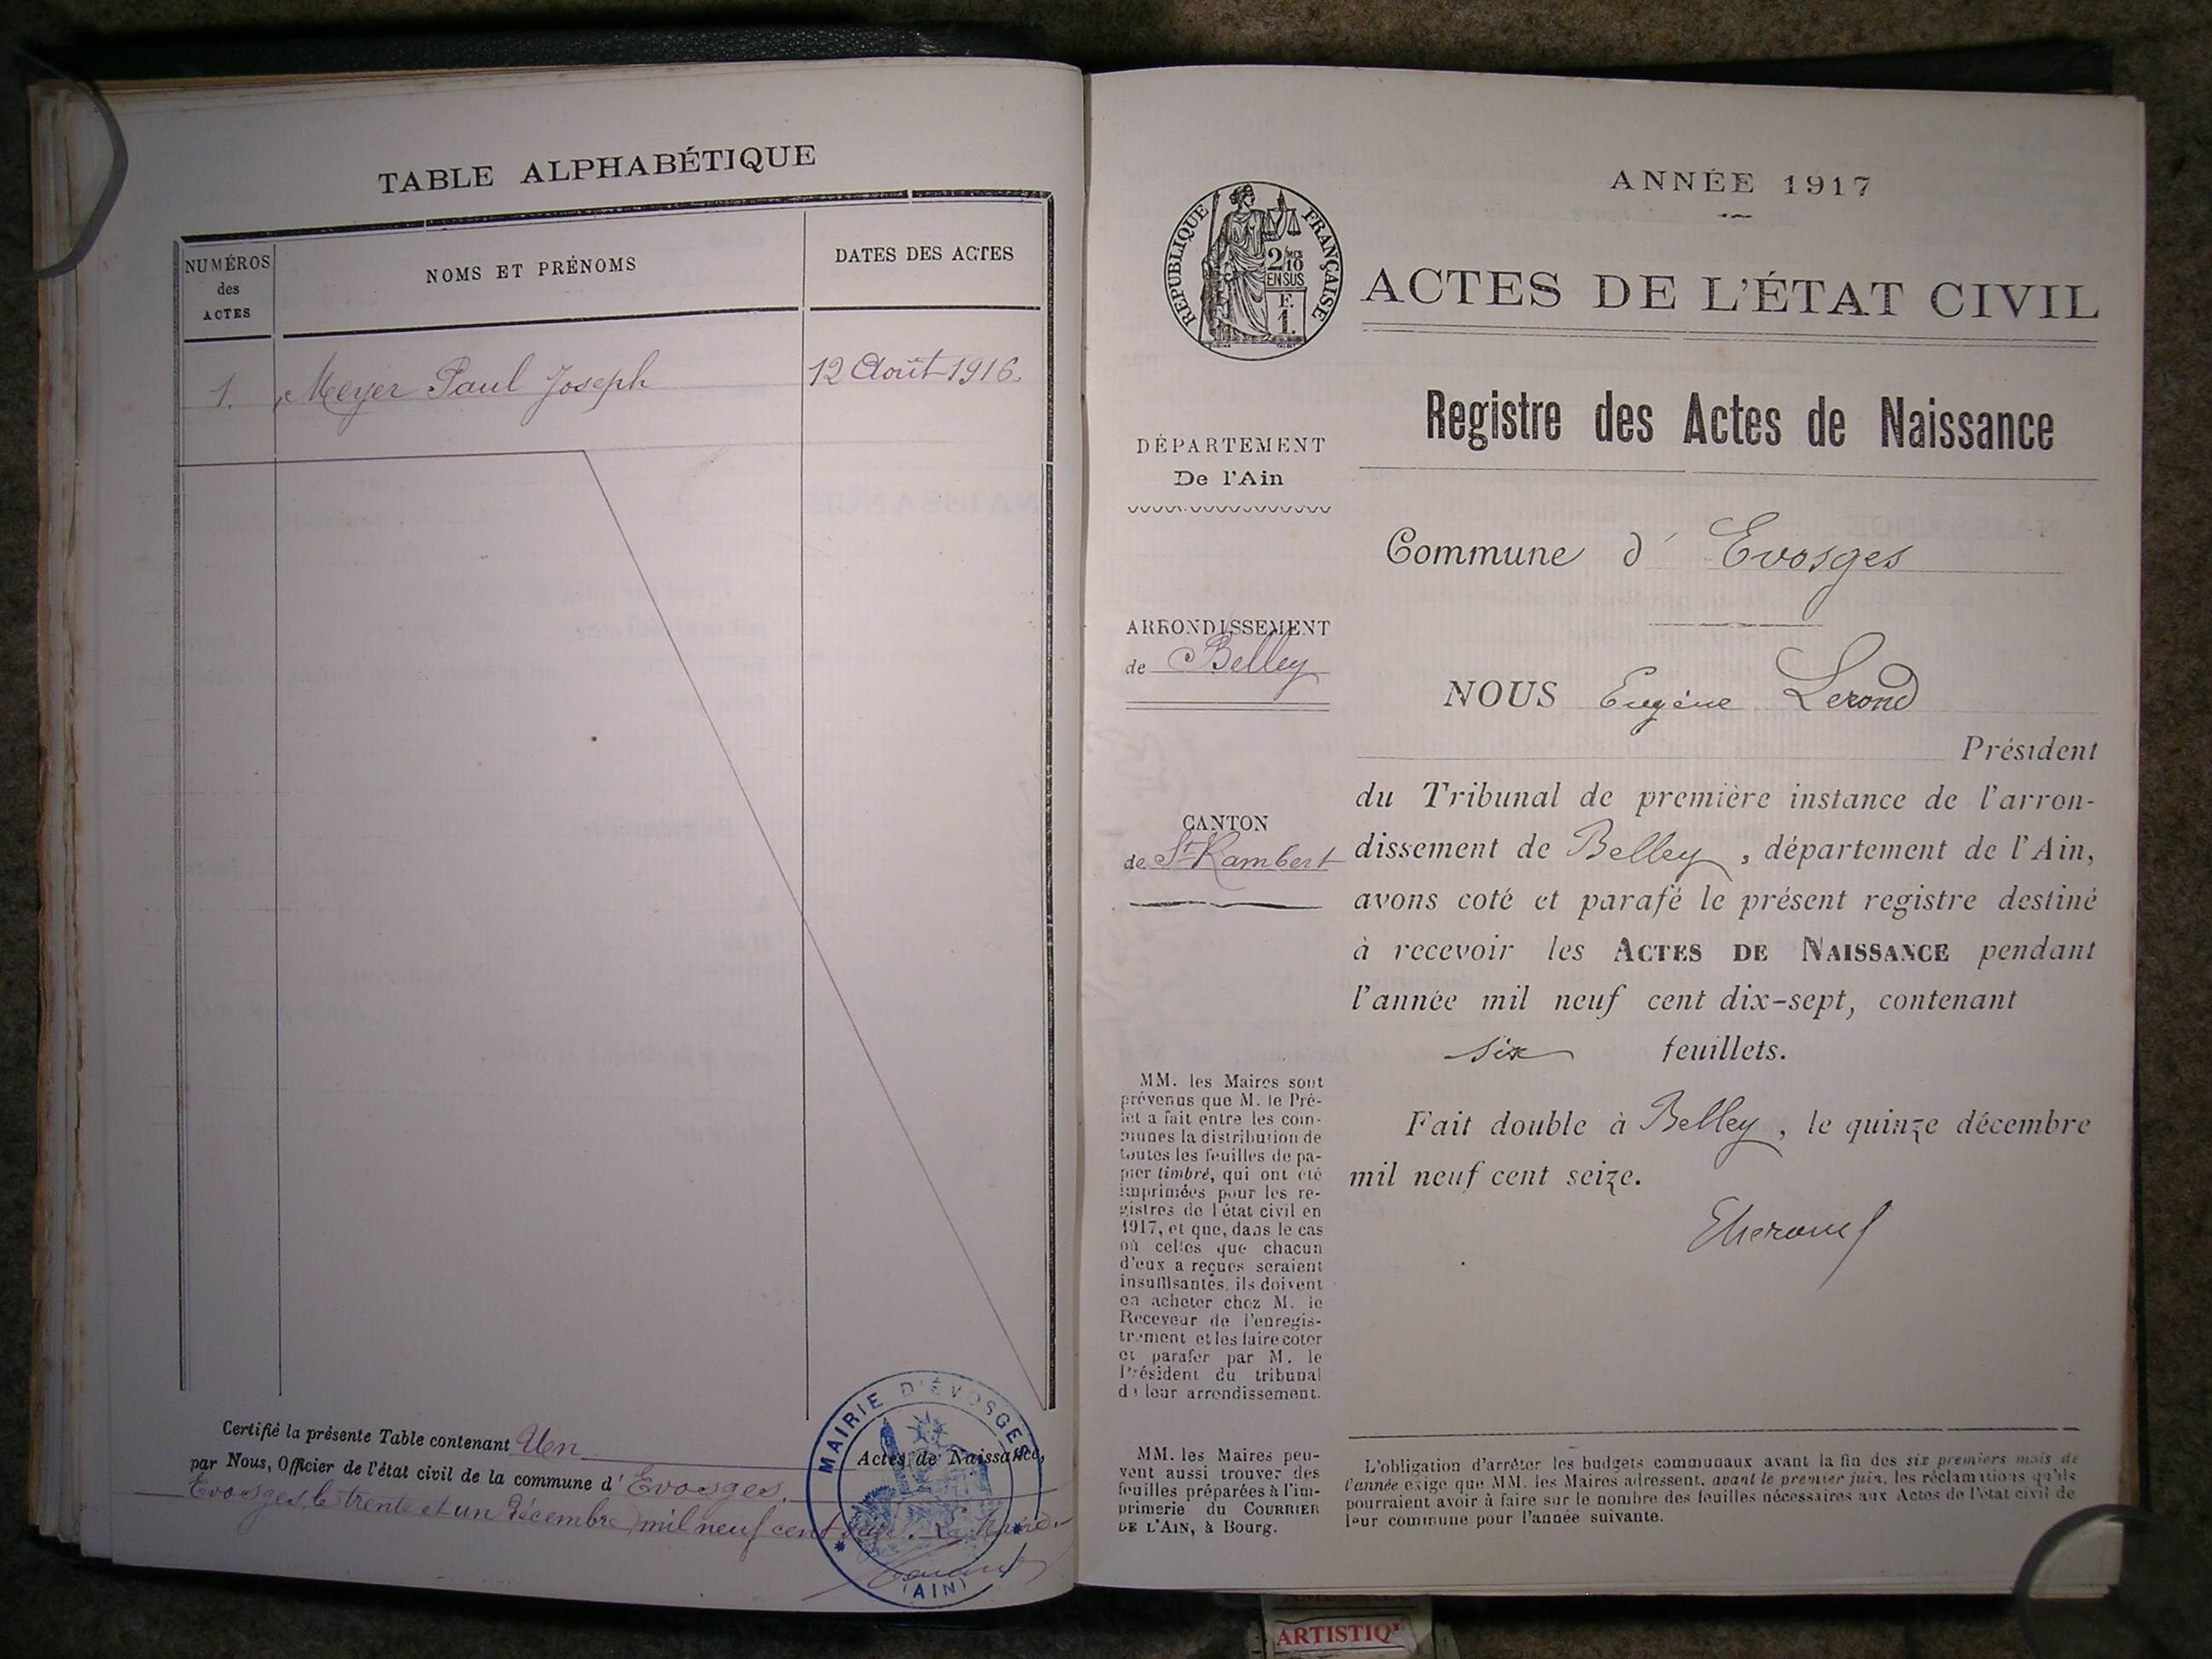 TABLE ALPHABÉTIQUE
NUMÉROS
des
ACTES
NOMS ET PRÉNOMS
DATES DES ACTES
1. Meyer Paul Joseph 12 Août 1916.
Certifié la présente Table contenant Un Actes de Naissance,
par Nous, Officier de l'état civil de la commune d' Evosges.
Evosges, le trente et un Décembre mil neuf cent seize. Le Maire.
MAIRIE D'ÉVOSGES
(AIN)
ANNÉE 1917
RÉPUBLIQUE FRANÇAISE
2/10
EN SUS
F.
1.
ACTES DE L'ÉTAT CIVIL
Registre des Actes de Naissance
DÉPARTEMENT
De l'Ain
ARRONDISSEMENT
de Belley
CANTON
de St Rambert
MM. les Maires sont
prévenus que M. le Pré-
fet a fait entre les com-
munes la distribution de
toutes les feuilles de pa-
pier timbré, qui ont été
imprimées pour les re-
gistres de l'état civil en
1917, et que, dans le cas
où celles que chacun
d'eux a reçues seraient
insuffisantes, ils doivent
en acheter chez M. le
Receveur de l'enregis-
trement et les faire coter
et parafer par M. le
Président du tribunal
de leur arrondissement.
MM. les Maires peu-
vent aussi trouver des
feuilles préparées à l'im-
primerie du COURRIER
DE L'AIN, à Bourg.
Commune d' Evosges
NOUS Eugène Lerond
Président
du Tribunal de première instance de l'arron-
dissement de Belley, département de l'Ain,
avons coté et parafé le présent registre destiné
à recevoir les ACTES DE NAISSANCE pendant
l'année mil neuf cent dix-sept, contenant
six feuillets.
Fait double à Belley, le quinze décembre
mil neuf cent seize.
L'obligation d'arrêter les budgets communaux avant la fin des six premiers mois de
l'année exige que MM. les Maires adressent, avant le premier juin, les réclamations qu'ils
pourraient avoir à faire sur le nombre des feuilles nécessaires aux Actes de l'état civil de
leur commune pour l'année suivante.
ARTISTIQ